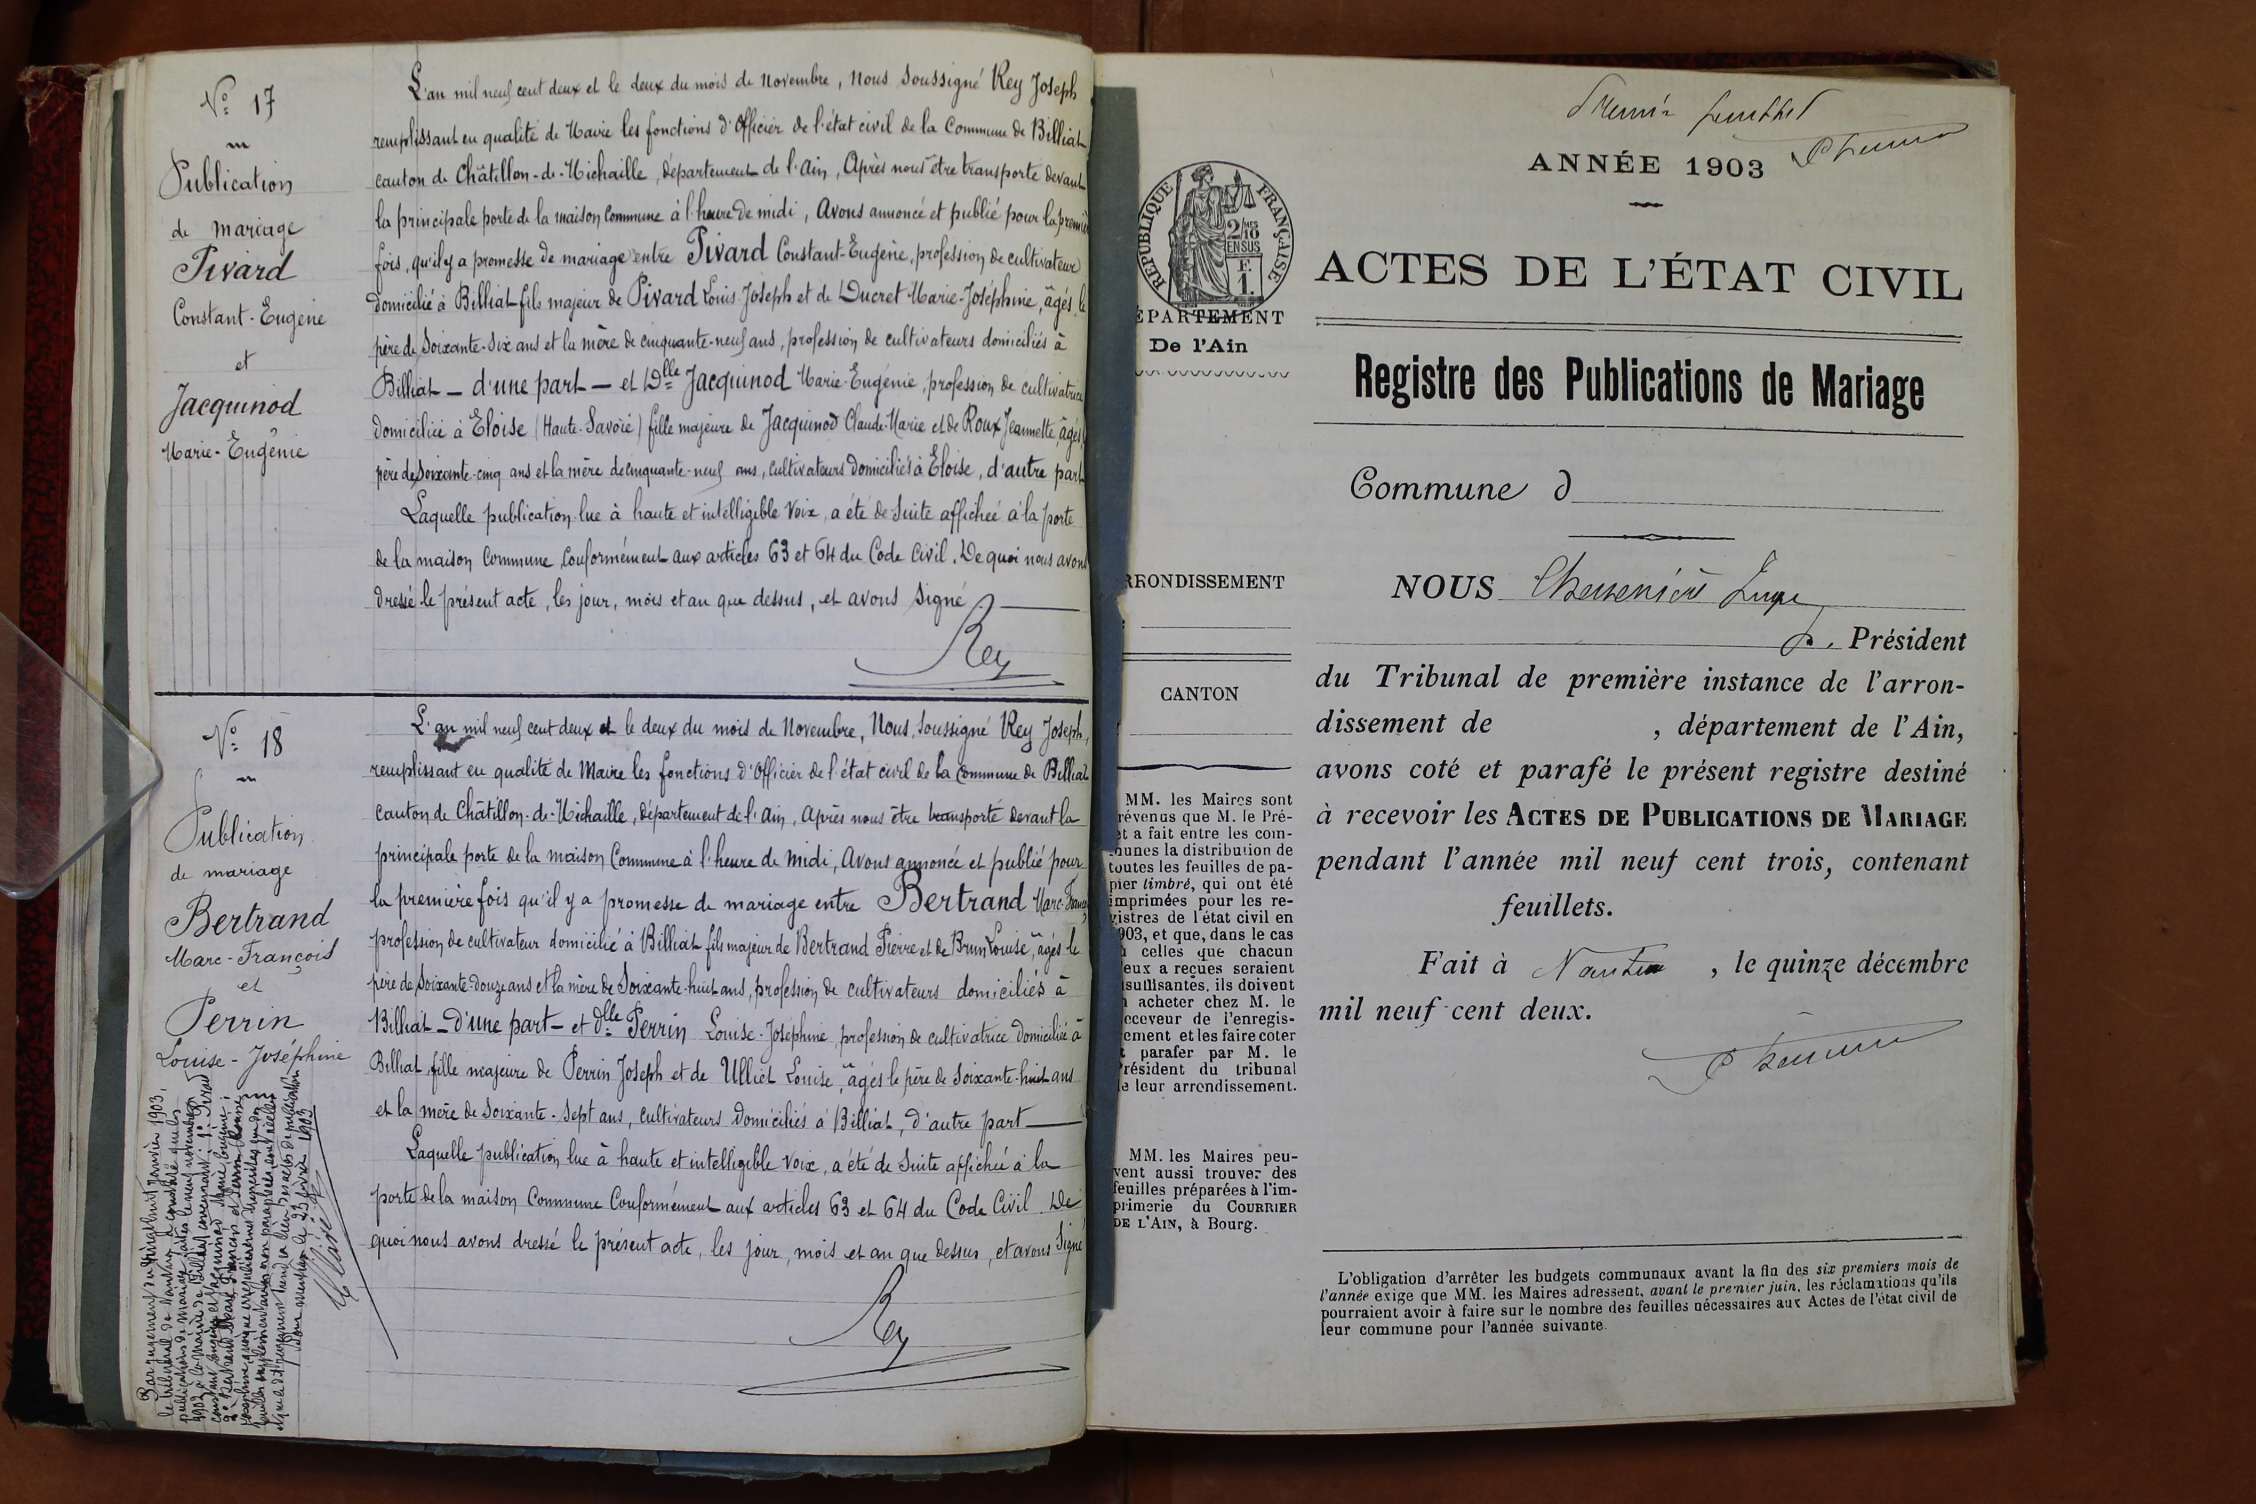 Nº 17
Publication
de mariage
Pivard
Constant-Eugène
et
Jacquinod
Marie-Eugénie
L'an mil neuf cent deux et le deux du mois de Novembre, Nous soussigné Rey Joseph
remplissant en qualité de Maire les fonctions d'Officier de l'état civil de la Commune de Billiat
canton de Châtillon-de-Michaille, département de l'Ain, Après nous être transporté devant
la principale porte de la maison Commune à l'heure de midi, Avons annoncé et publié pour la première
fois, qu'il y a promesse de mariage entre Pivard Constant-Eugène, profession de cultivateur
domicilié à Billiat fils majeur de Pivard Louis-Joseph et de Ducret Marie-Joséphine, âgés le
père de Soixante-six ans et la mère de cinquante-neuf ans, profession de cultivateurs domiciliés à
Billiat — d'une part — et Dlle Jacquinod Marie-Eugénie, profession de cultivatrice
domiciliée à Eloise (Haute-Savoie) fille majeure de Jacquinod Claude-Marie et de Roux Jeannette, âgés
père de Soixante-cinq ans et la mère de cinquante-neuf ans, cultivateurs domiciliés à Eloise, d'autre part
Laquelle publication lue à haute et intelligible voix, a été de suite affichée à la porte
de la maison Commune Conformément aux articles 63 et 64 du Code Civil. De quoi nous avons
dressé le présent acte, les jour, mois et an que dessus, et avons signé
Rey
Nº 18
Publication
de mariage
Bertrand
Marc-François
et
Perrin
Louise-Joséphine
L'an mil neuf cent deux et le deux du mois de Novembre, Nous, Soussigné Rey Joseph,
remplissant en qualité de Maire les fonctions d'Officier de l'état civil de la Commune de Billiat
canton de Châtillon-de-Michaille, département de l'Ain, Après nous être transporté devant la
principale porte de la maison Commune à l'heure de midi, Avons annoncé et publié pour
la première fois qu'il y a promesse de mariage entre Bertrand Marc-François
profession de cultivateur domicilié à Billiat fils majeur de Bertrand Pierre et de Brun Louise, âgés le
père de Soixante-douze ans et la mère de Soixante-huit ans, profession de cultivateurs domiciliés à
Billiat — d'une part — et dlle Perrin Louise-Joséphine, profession de cultivatrice domiciliée à
Billiat, fille majeure de Perrin Joseph et de Ulliet Louise, âgés le père de Soixante-huit ans
et la mère de Soixante-Sept ans, cultivateurs domiciliés à Billiat, d'autre part
Laquelle publication lue à haute et intelligible voix, a été de suite affichée à la
porte de la maison Commune Conformément aux articles 63 et 64 du Code Civil. De
quoi nous avons dressé le présent acte, les jour, mois et an que dessus, et avons Signé
Rey
Par jugement du vingt huit janvier 1903,
le tribunal de Nantua a constaté que les
publications de mariage faites le neuf novembre
1902 à la mairie de Billiat concernant: 1º Pivard
Constant Eugène et Jacquinod Marie Eugénie;
2º Bertrand Marc François et Perrin Louise
Joséphine
Pour mention le 23 février 1903
ANNÉE 1903
RÉPUBLIQUE FRANÇAISE
2/10 MES
EN SUS
F.
1.
ACTES DE L'ÉTAT CIVIL
ÉPARTEMENT
De l'Ain
Registre des Publications de Mariage
Commune d
RRONDISSEMENT
NOUS
Président
CANTON
du Tribunal de première instance de l'arron-
dissement de , département de l'Ain,
avons coté et parafé le présent registre destiné
à recevoir les ACTES DE PUBLICATIONS DE MARIAGE
pendant l'année mil neuf cent trois, contenant
feuillets.
Fait à Nantua , le quinze décembre
mil neuf cent deux.
MM. les Maires sont
révenus que M. le Pré-
et a fait entre les com-
munes la distribution de
toutes les feuilles de pa-
pier timbré, qui ont été
imprimées pour les re-
gistres de l'état civil en
903, et que, dans le cas
celles que chacun
'eux a reçues seraient
nsuffisantes, ils doivent
acheter chez M. le
eceveur de l'enregis-
ement et les faire coter
parafer par M. le
Président du tribunal
e leur arrondissement.
MM. les Maires peu-
vent aussi trouver des
feuilles préparées à l'im-
primerie du COURRIER
DE L'AIN, à Bourg.
L'obligation d'arrêter les budgets communaux avant la fin des six premiers mois de
l'année exige que MM. les Maires adressent, avant le premier juin, les réclamations qu'ils
pourraient avoir à faire sur le nombre des feuilles nécessaires aux Actes de l'état civil de
leur commune pour l'année suivante.